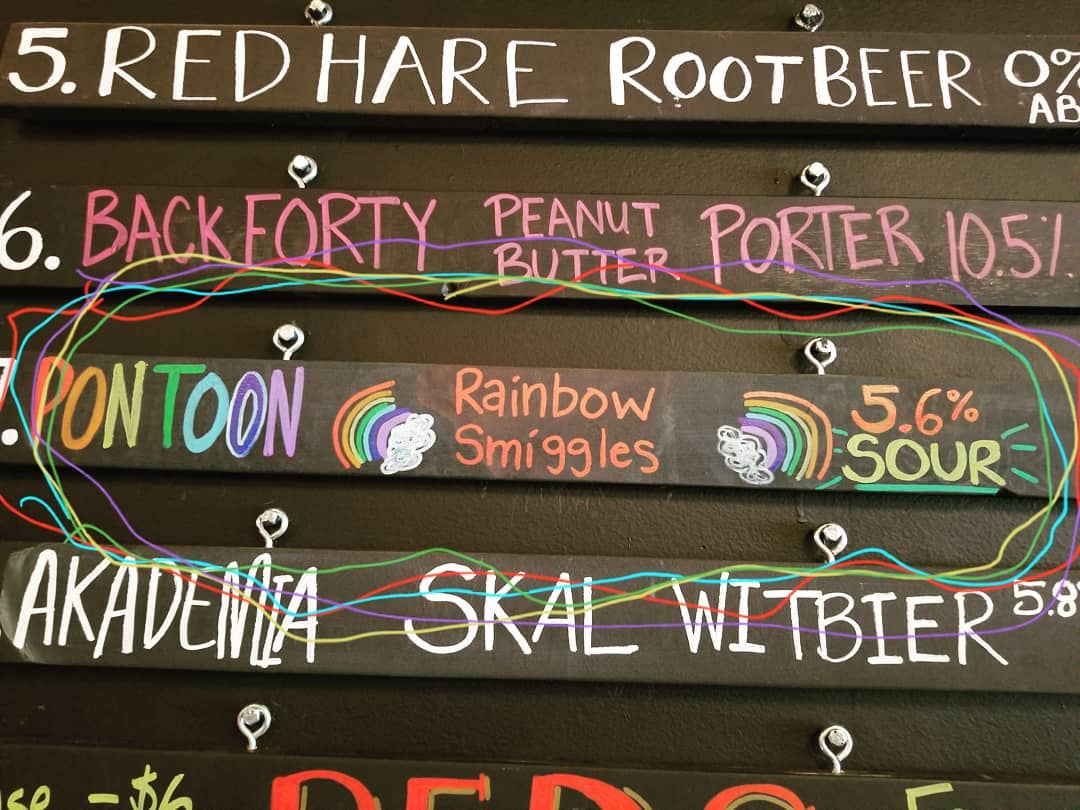 5. RED HARE ROOTBEER 0%
AB
6. BACK FORTY PEANUT BUTTER PORTER 10.5%
PONTOON Rainbow Smiggles 5.6% SOUR
AKADEMIA SKAL WITBIER 5.8
- $6